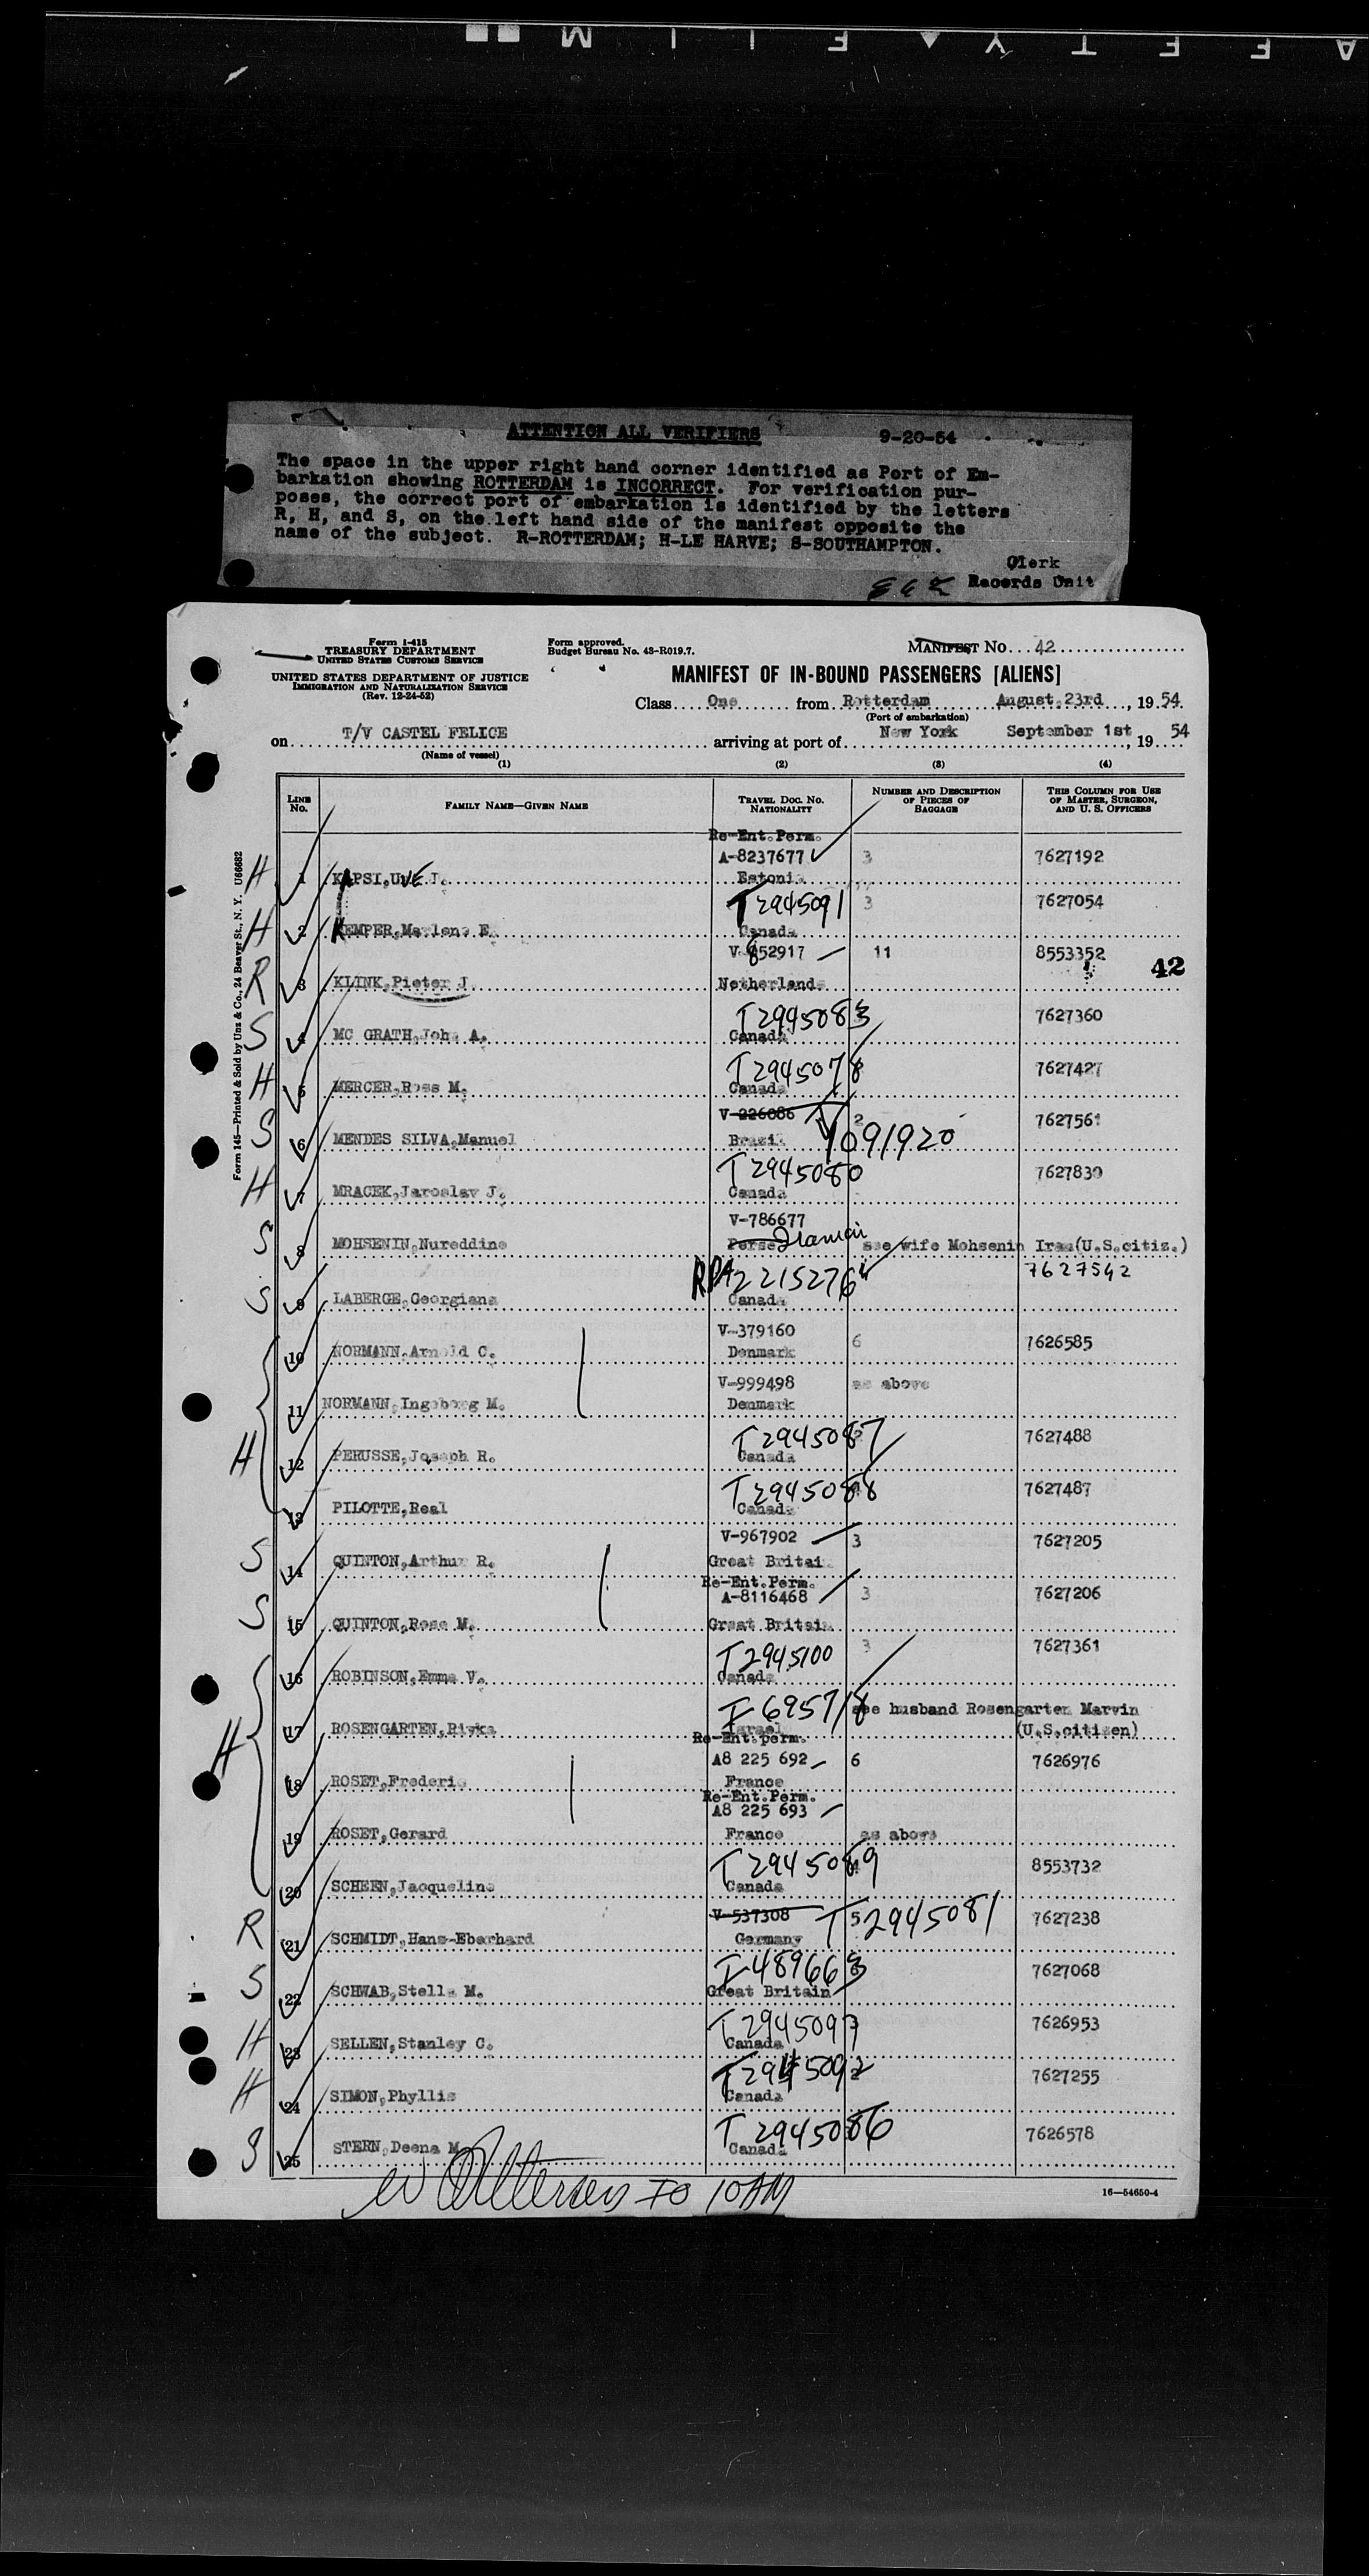 SAFETY FILM
ATTENTION ALL VERIFIERS 9-20-54
The space in the upper right hand corner identified as Port of Em-
barkation showing ROTTERDAM is INCORRECT. For verification pur-
poses, the correct port of embarkation is identified by the letters
R, H, and S, on the left hand side of the manifest opposite the
name of the subject. R-ROTTERDAM; H-LE HARVE; S-SOUTHAMPTON.
Clerk
Records Unit
Form I-415
TREASURY DEPARTMENT
UNITED STATES CUSTOMS SERVICE
UNITED STATES DEPARTMENT OF JUSTICE
IMMIGRATION AND NATURALIZATION SERVICE
(Rev. 12-24-52)
Form approved.
Budget Bureau No. 43-R019.7.
MANIFEST No. 42
MANIFEST OF IN-BOUND PASSENGERS [ALIENS]
Class One from Rotterdam August 23rd, 1954
(Port of embarkation)
on T/V CASTEL FELICE arriving at port of New York September 1st, 1954
(Name of vessel)
(1) (2) (3) (4)
LINE No. FAMILY NAME—GIVEN NAME TRAVEL DOC. NO. NATIONALITY NUMBER AND DESCRIPTION OF PIECES OF BAGGAGE THIS COLUMN FOR USE OF MASTER, SURGEON, AND U. S. OFFICERS
Form 145—Printed & Sold by Unz & Co., 24 Beaver St., N. Y. U66682
Re-Ent.Perm.
A-8237677 3 7627192
H 1 KAPSI,UVE J. Estonia
T2945091 3 7627054
H 2 KEMPER,Marlene E. Canada
V-852917 11 8553352
42
R 3 KLINK,Pieter J. Netherlands
T2945083 7627360
S 4 MC GRATH,John A. Canada
T2945078 7627427
H 5 MERCER,Ross M. Canada
V-226086 V1091920 2 7627561
S 6 MENDES SILVA,Manuel Brazil
T2945080 7627839
H 7 MRACEK,Jaroslav J. Canada
V-786677
S 8 MOHSENIN,Nureddine see wife Mohsenin Iran(U.S.citiz.)
RPA2215276 7627542
S 9 LABERGE,Georgiana Canada
V-379160 6 7626585
10 NORMANN,Arnold C. Denmark
V-999498 as above
11 NORMANN,Ingeborg M. Denmark
T2945087 7627488
H 12 PERUSSE,Joseph R. Canada
T2945088 7627487
13 PILOTTE,Real Canada
V-967902 3 7627205
S 14 QUINTON,Arthur R. Great Britain
Re-Ent.Perm.
A-8116468 3 7627206
S 15 QUINTON,Rose M. Great Britain
T2945100 3 7627361
16 ROBINSON,Emma V. Canada
I-695718 see husband Rosengarten Marvin
H 17 ROSENGARTEN,Rivka Israel (U.S.citizen)
Re-Ent.perm.
A8 225 692 6 7626976
18 ROSET,Frederic France
Re-Ent.Perm.
A8 225 693
19 ROSET,Gerard France as above
T2945089 8553732
20 SCHEEN,Jacqueline Canada
V-537308 T2945081 5 7627238
R 21 SCHMIDT,Hans-Eberhard Germany
I-489663 7627068
S 22 SCHWAB,Stella M. Great Britain
T2945097 7626953
H 23 SELLEN,Stanley C. Canada
T2945092 7627255
H 24 SIMON,Phyllis Canada
T2945086 7626578
S 25 STERN,Deena M. Canada
10 AM
16—54650-4